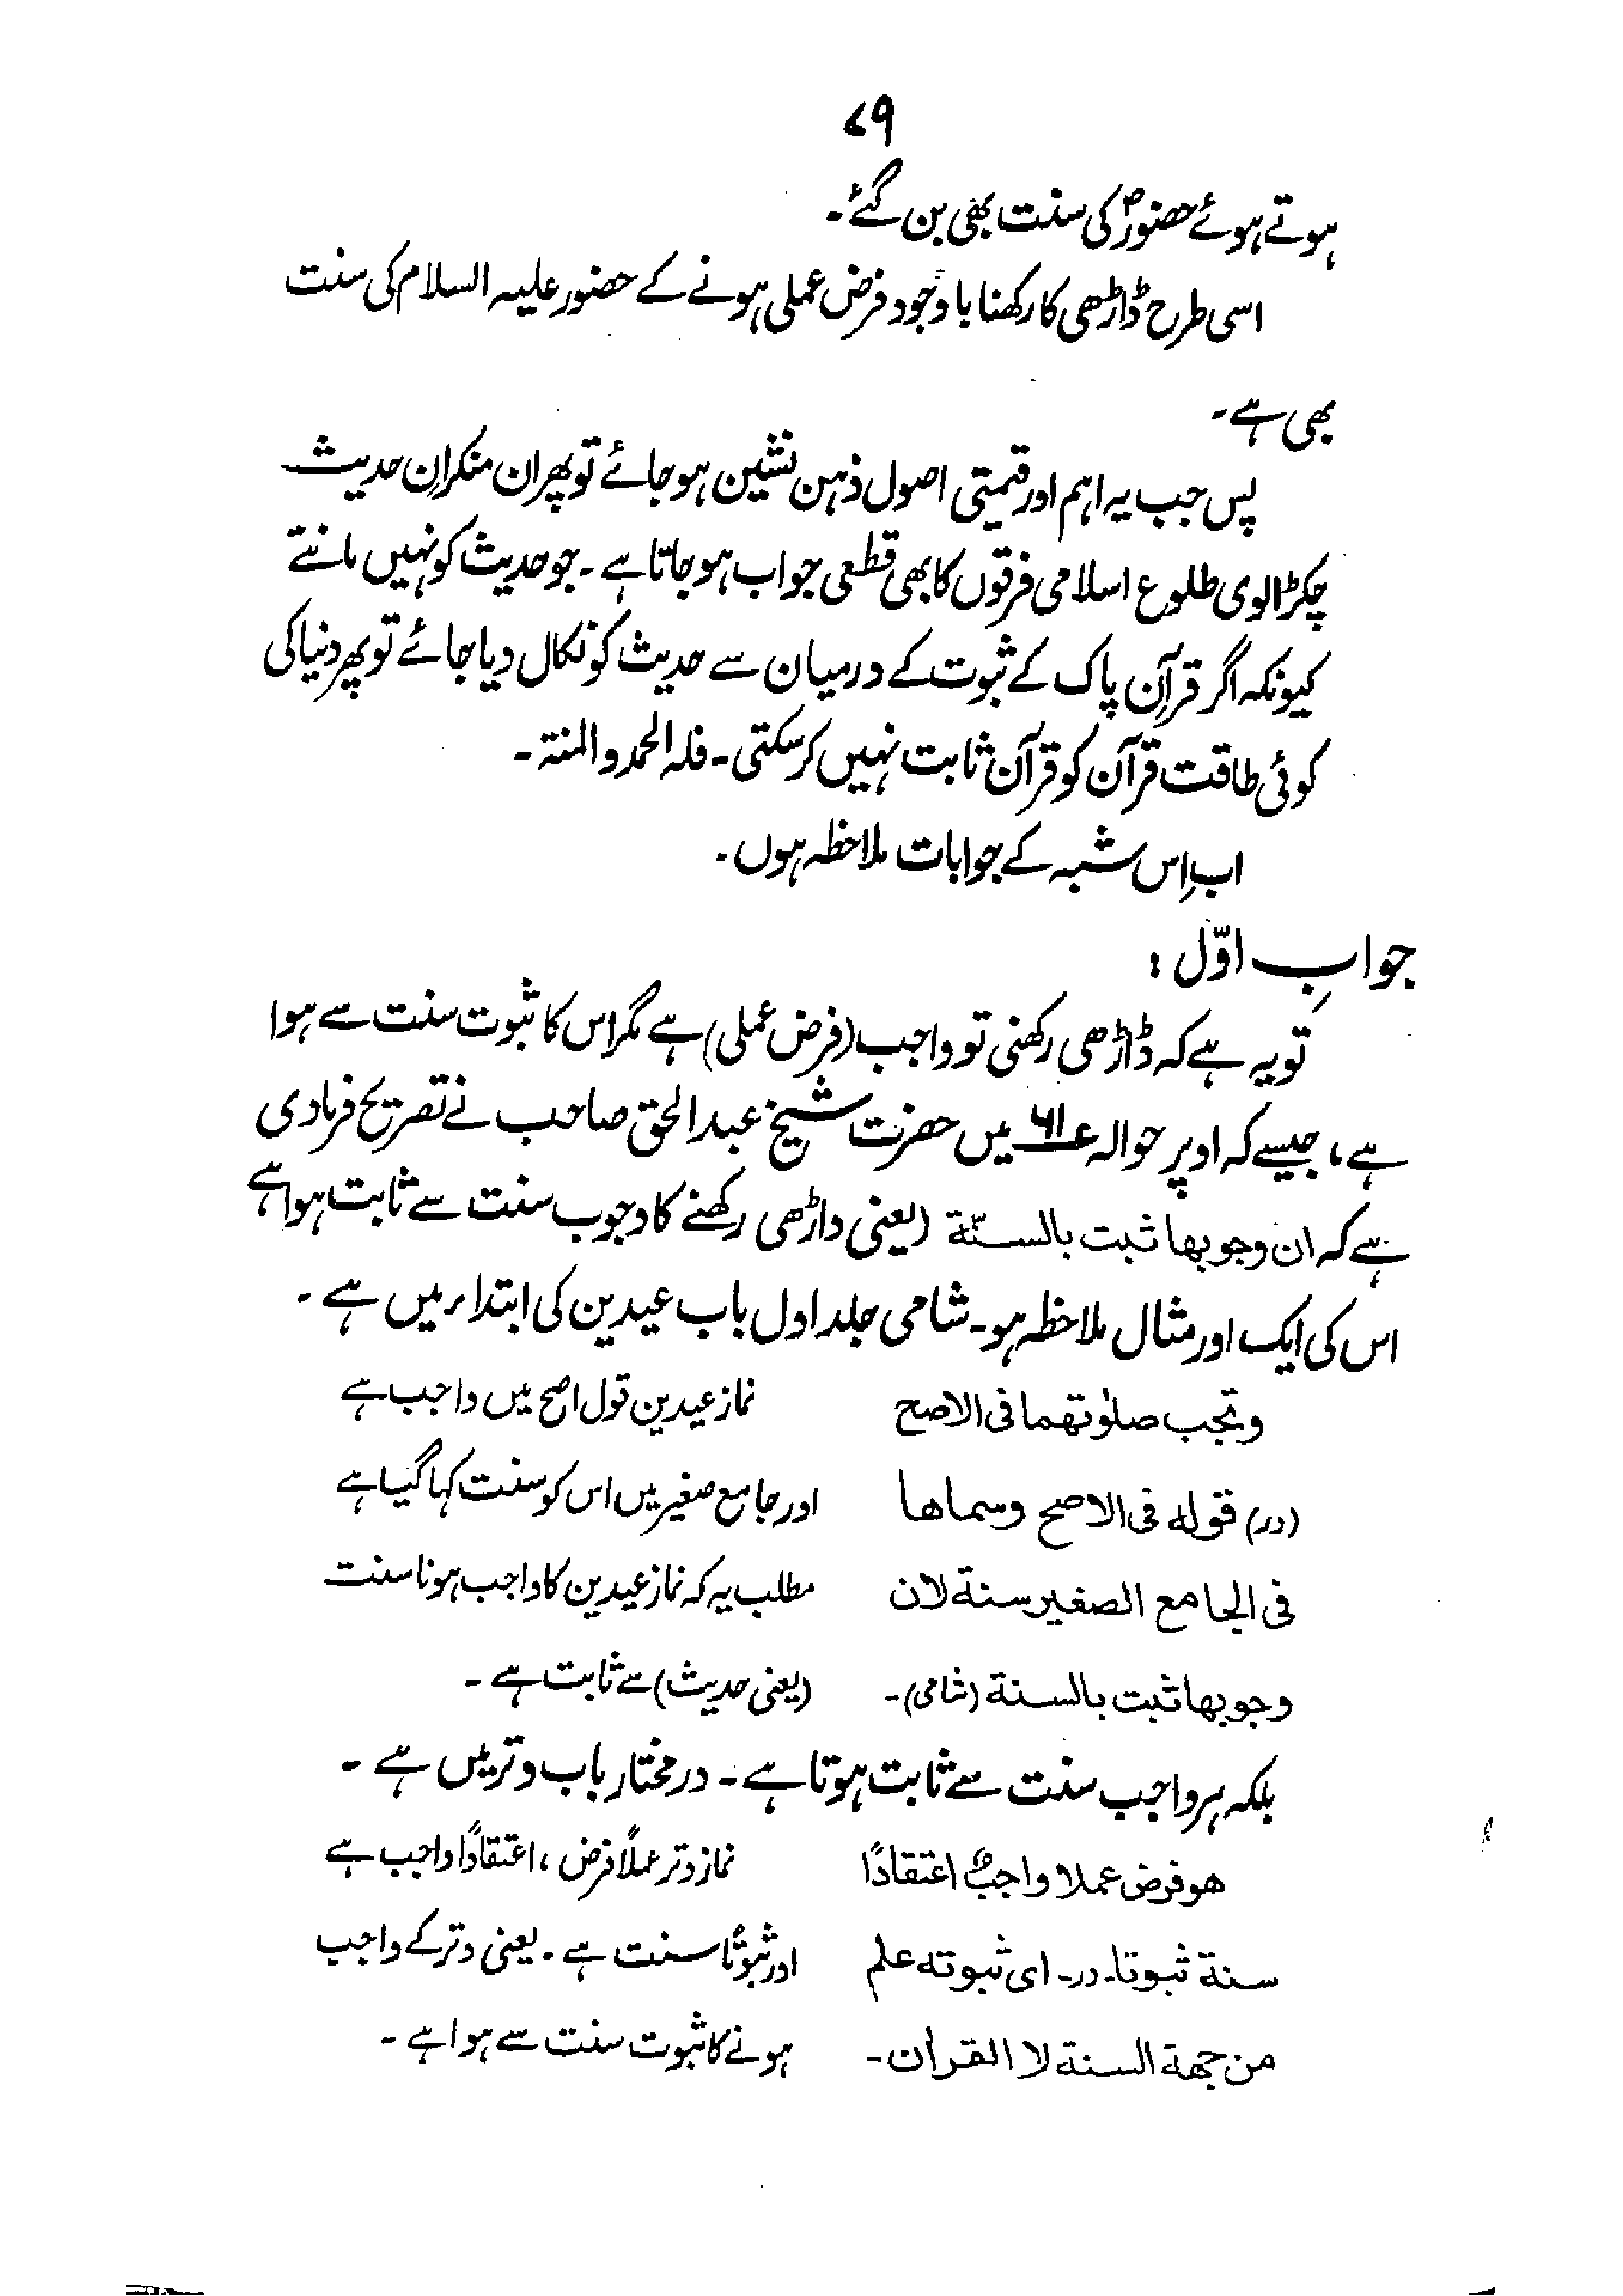 ۷۹
ہوتے ہوئے حضورؐ کی سنت بھی بن گئے۔
اسی طرح ڈاڑھی کا رکھنا باوجود فرض عملی ہونے کے حضور علیہ السلام کی سنت
بھی ہے۔
پس جب یہ اہم اور قیمتی اصول ذہن نشین ہو جائے تو پھر ان منکرانِ حدیث
چکڑالوی طلوع اسلامی فرقوں کا بھی قطعی جواب ہو جاتا ہے۔ جو حدیث کو نہیں مانتے
کیونکہ اگر قرآن پاک کے ثبوت کے درمیان سے حدیث کو نکال دیا جائے تو پھر دنیا کی
کوئی طاقت قرآن کو قرآن ثابت نہیں کر سکتی۔ فلہ الحمد والمنۃ۔
اب اِس شبہ کے جوابات ملاحظہ ہوں۔
جوابِ اوّل :
تو یہ ہے کہ ڈاڑھی رکھنی تو واجب (فرض عملی) ہے مگر اس کا ثبوت سنت سے ہوا
ہے، جیسے کہ اوپر حوالہ ۶۱؏ میں حضرت شیخ عبدالحق صاحب نے تصریح فرمادی
ہے کہ ان وجوبها ثبت بالسنّة (یعنی داڑھی رکھنے کا وجوب سنت سے ثابت ہوا ہے
اس کی ایک اور مثال ملاحظہ ہو۔ شامی جلد اول باب عیدین کی ابتداء میں ہے۔
وتجب صلوٰتهما فی الاصح نماز عیدین قول اصح میں واجب ہے
(در) قوله فی الاصح وسماها اور جامع صغیر میں اس کو سنت کہا گیا ہے
فی الجامع الصغیر سنة لان مطلب یہ کہ نماز عیدین کا واجب ہونا سنت
وجوبها ثبت بالسنة (شامی)۔ (یعنی حدیث) سے ثابت ہے۔
بلکہ ہر واجب سنت سے ثابت ہوتا ہے۔ درمختار باب وتر میں ہے۔
هو فرض عملا واجبٌ اعتقادًا نماز وتر عملاً فرض، اعتقادًا واجب ہے
سنة ثبوتا۔ در۔ ای ثبوته علم اور ثبوتًا سنت ہے۔ یعنی وتر کے واجب
من جهة السنة لا القران۔ ہونے کا ثبوت سنت سے ہوا ہے۔